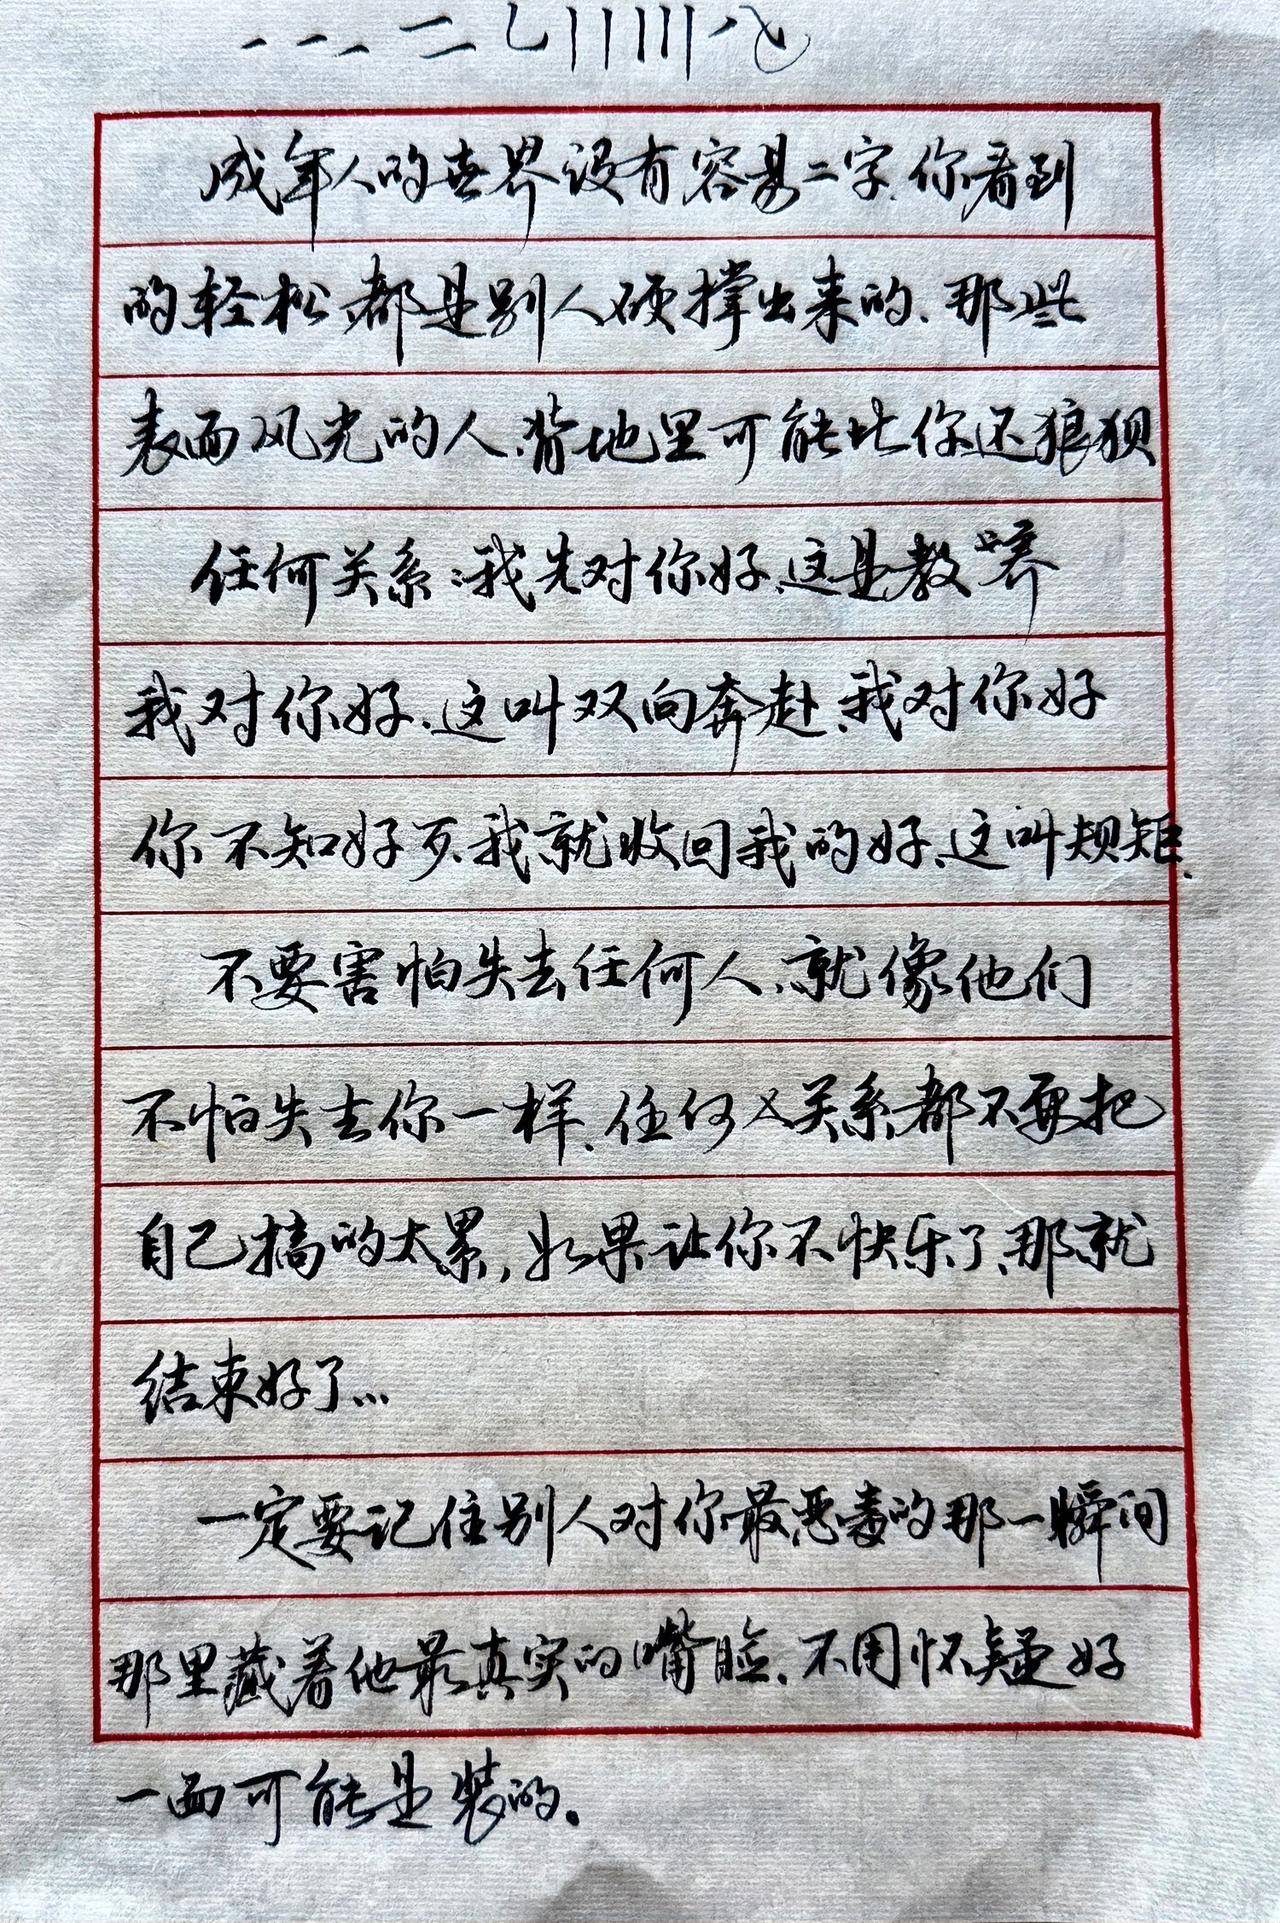 成年人的世界没有容易二字.你看到
的轻松,都是别人硬撑出来的、那些
表面风光的人、背地里可能比你还狼狈
任何关系:我先对你好、这是教养
我对你好、这叫双向奔赴、我对你好
你不知好歹、我就收回我的好、这叫规矩.
不要害怕失去任何人、就像他们
不怕失去你一样、任何关系都不要把
自己搞的太累,如果让你不快乐了、那就
结束好了...
一定要记住别人对你最恶毒的那一瞬间
那里藏着他最真实的嘴脸、不用怀疑好
一面可能是装的.